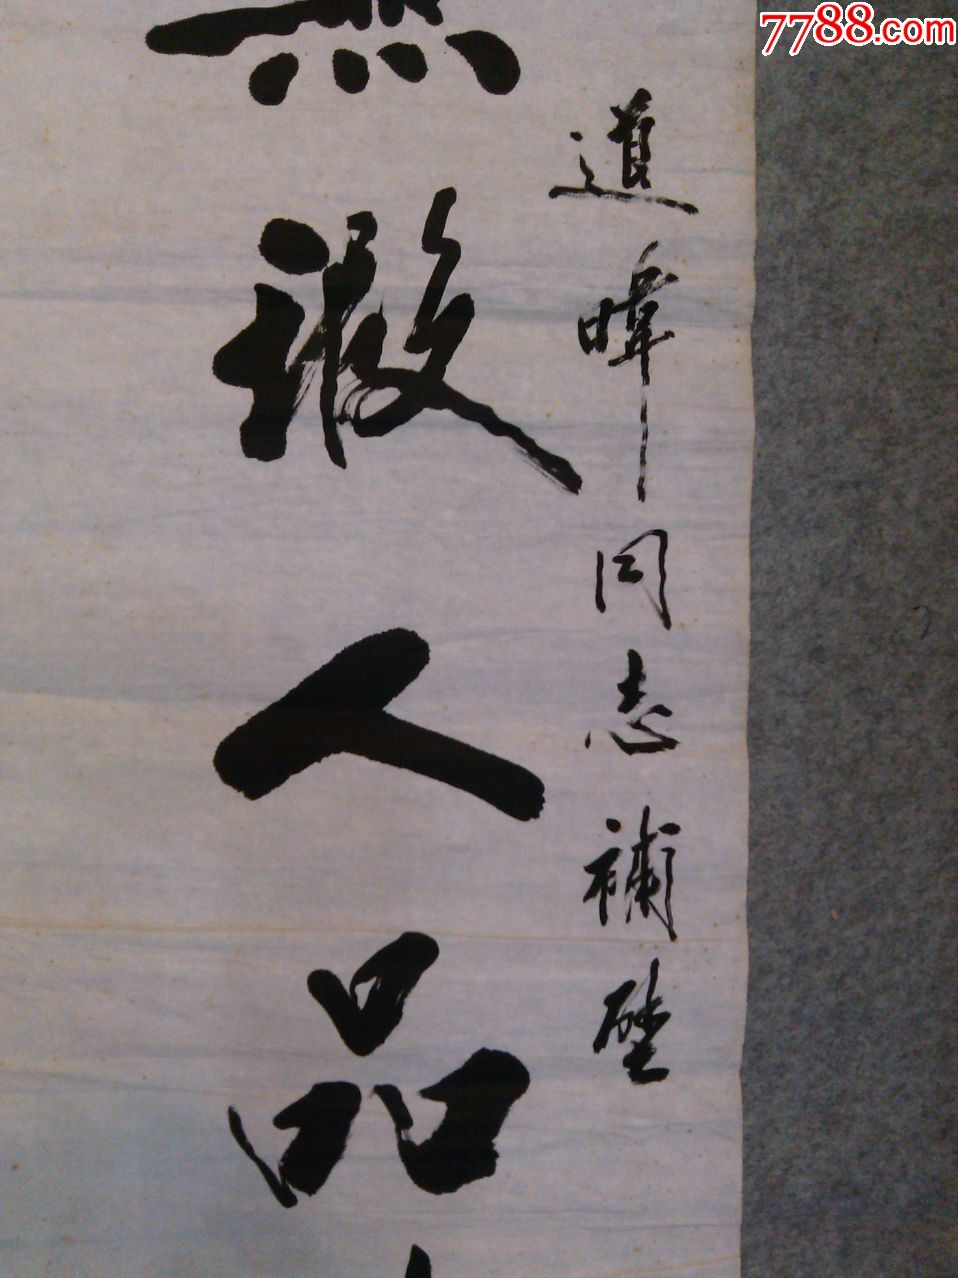 7788.com
道暐同志補壁
無瑕人品